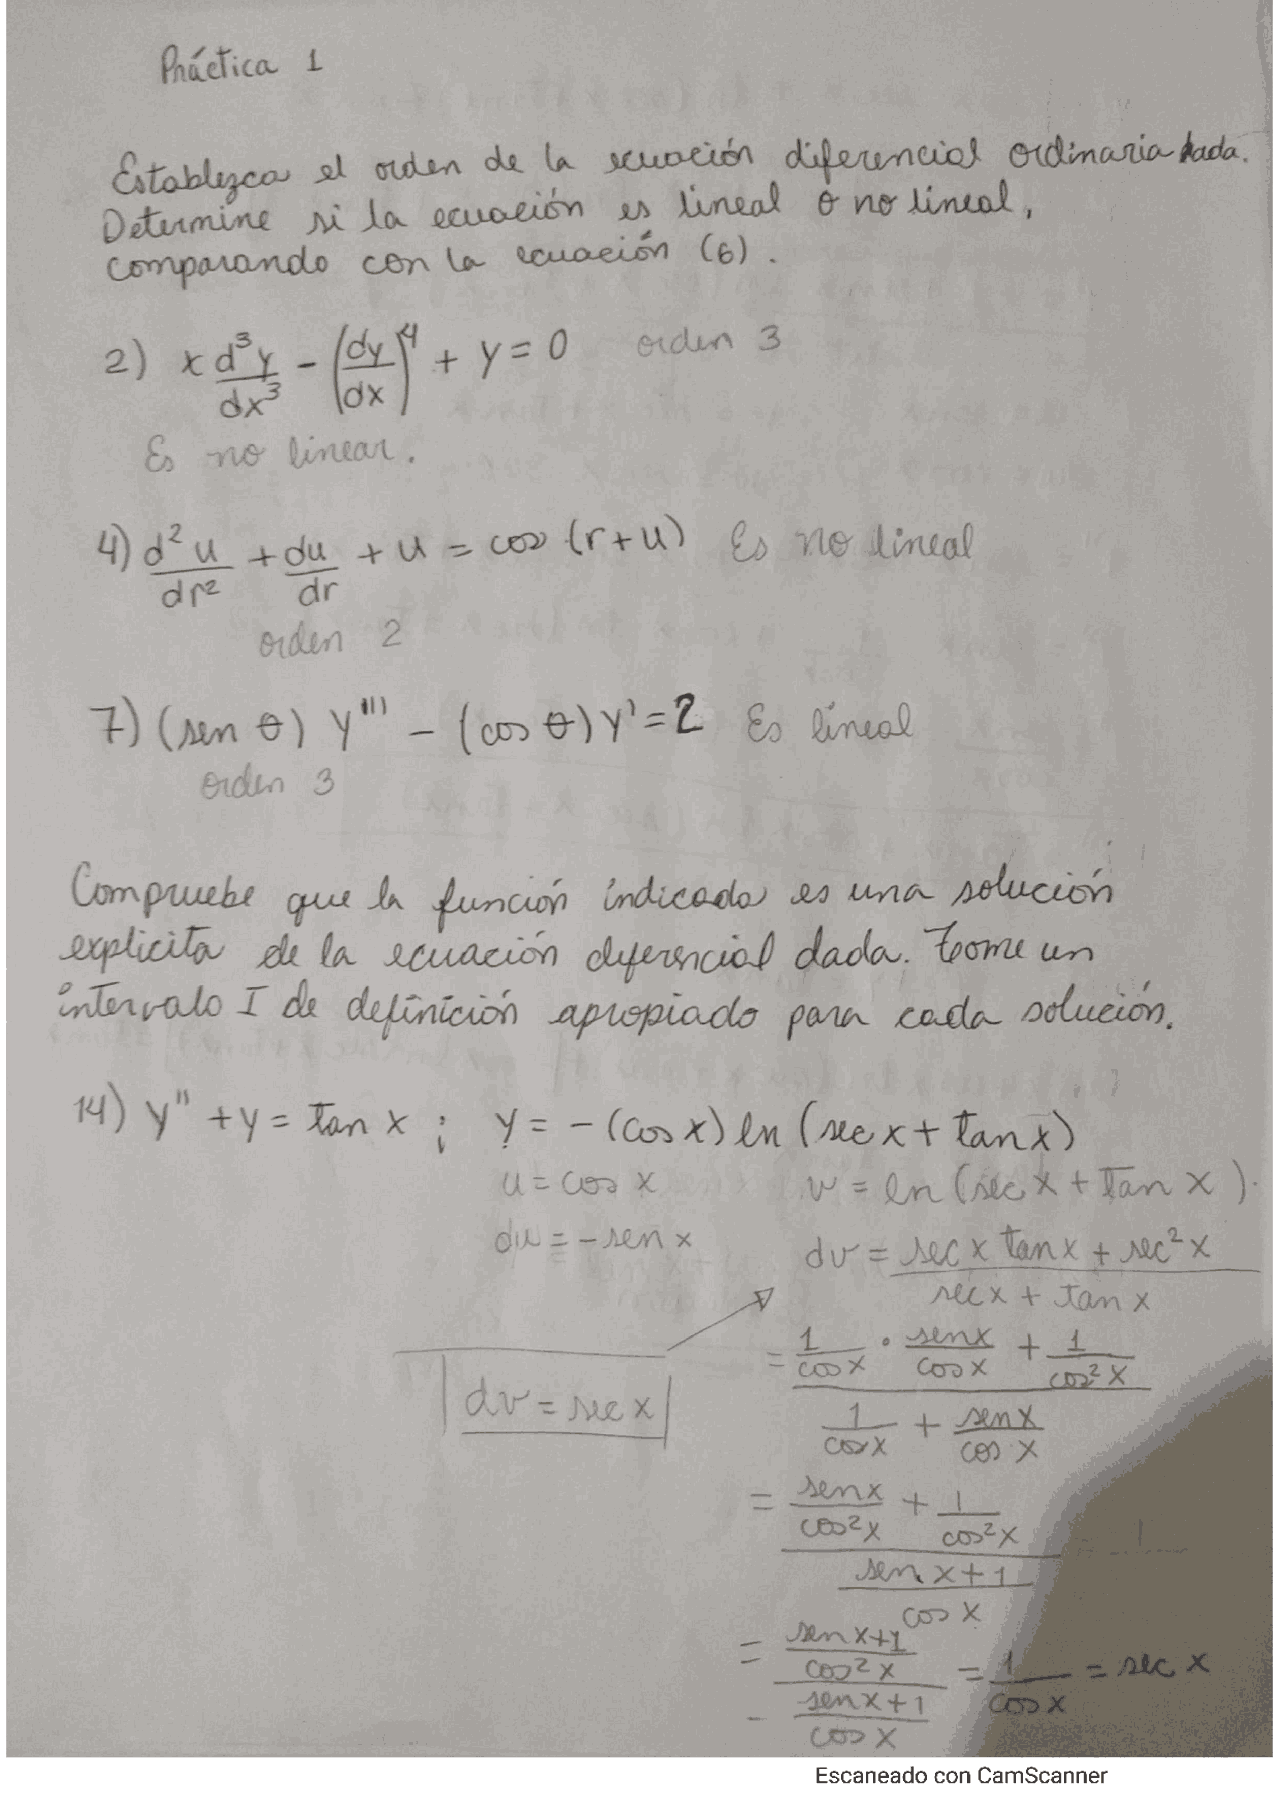 Práctica 1
Establezca el orden de la ecuación diferencial ordinaria dada.
Determine si la ecuación es lineal o no lineal,
comparando con la ecuación (6).
2) x d³y/dx³ - (dy/dx)⁴ + y = 0 orden 3
Es no linear.
4) d²u/dr² + du/dr + u = cos (r+u) Es no lineal
orden 2
7) (sen θ) y''' - (cos θ) y' = 2 Es lineal
orden 3
Compruebe que la función indicada es una solución
explicita de la ecuación diferencial dada. Tome un
intervalo I de definición apropiado para cada solución.
14) y'' + y = tan x ; y = - (cos x) ln (sec x + tan x)
u = cos x v = ln (sec x + tan x).
du = - sen x dv = (sec x tan x + sec² x)/(sec x + tan x)
= (1/cos x · sen x/cos x + 1/cos² x)/(1/cos x + sen x/cos x)
dv = sec x
= (sen x/cos² x + 1/cos² x)/((sen x + 1)/cos x)
= ((sen x+1)/cos² x)/((sen x+1)/cos x) = 1/cos x = sec x
Escaneado con CamScanner